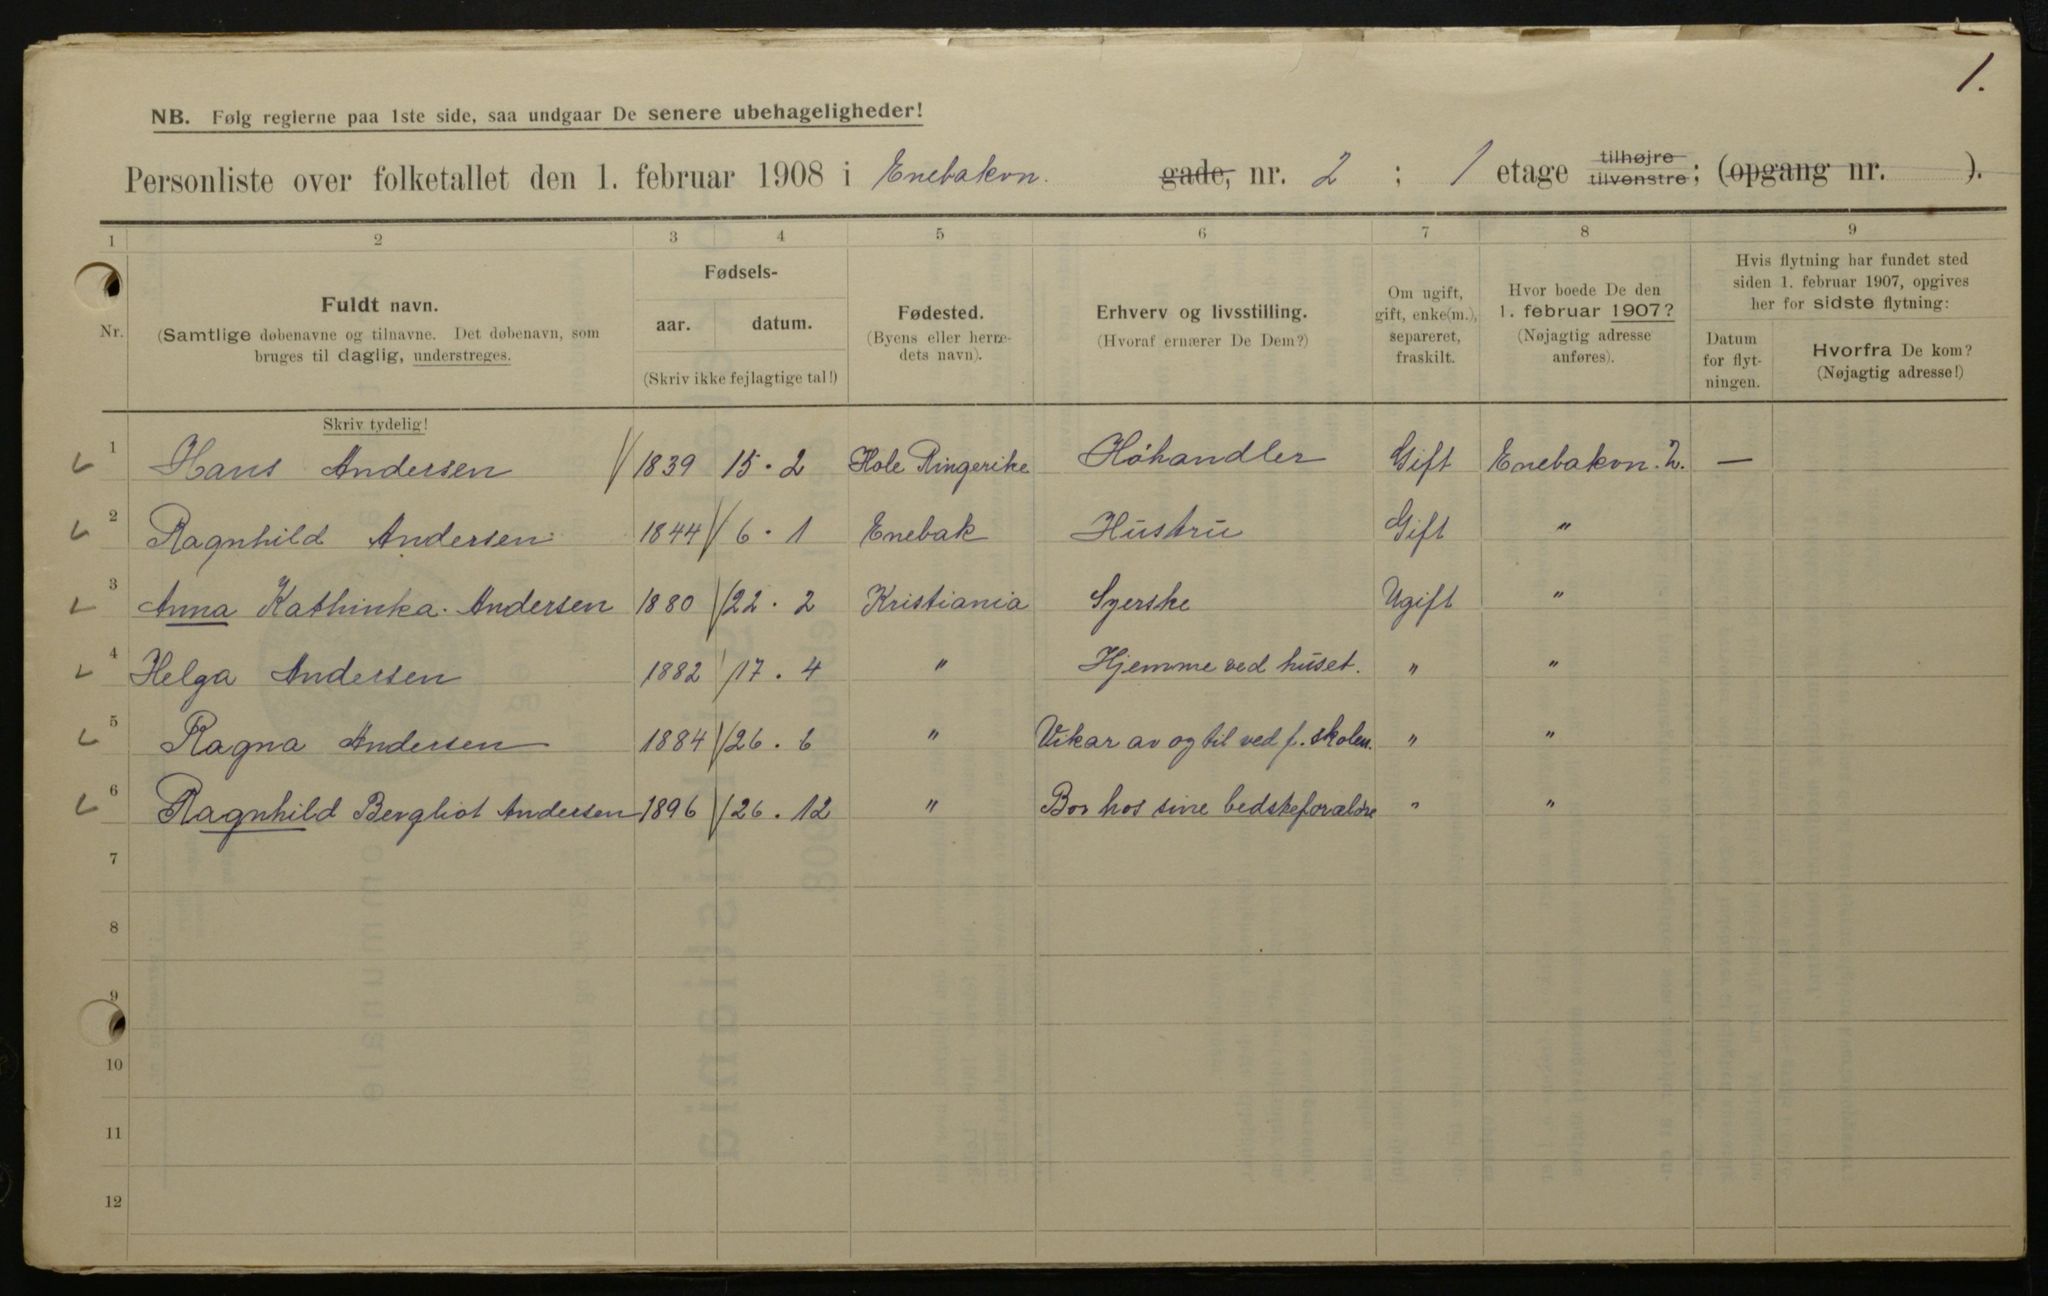 1.
NB. Følg reglerne paa 1ste side, saa undgaar De senere ubehageligheder!
Personliste over folketallet den 1. februar 1908 i Enebakvn. gade, nr. 2 ; 1 etage tilhøjre tilvenstre; (opgang nr. ).
1 2 3 4 5 6 7 8 9
Nr.
Fuldt navn.
(Samtlige døbenavne og tilnavne. Det døbenavn, som
bruges til daglig, understreges.
Fødsels-
aar. datum.
(Skriv ikke fejlagtige tal!)
Fødested.
(Byens eller herre-
dets navn).
Erhverv og livsstilling.
(Hvoraf ernærer De Dem?)
Om ugift,
gift, enke(m.),
separeret,
fraskilt.
Hvor boede De den
1. februar 1907?
(Nøjagtig adresse
anføres).
Hvis flytning har fundet sted
siden 1. februar 1907, opgives
her for sidste flytning:
Datum
for flyt-
ningen.
Hvorfra De kom?
(Nøjagtig adresse!)
Skriv tydelig!
1 Hans Andersen 1839 15 . 2 Hole Ringerike Høhandler Gift Enebakvn. 2. —
2 Ragnhild Andersen 1844 6 . 1 Enebak Hustru Gift "
3 Anna Kathinka Andersen 1880 22 . 2 Kristiania Syerske Ugift "
4 Helga Andersen 1882 17 . 4 " Hjemme ved huset. " "
5 Ragna Andersen 1884 26 . 6 " Vikar av og til ved f. skolen. " "
6 Ragnhild Bergliot Andersen 1896 26 . 12 " Bor hos sine bedsteforældre " "
7
8
9
10
11
12